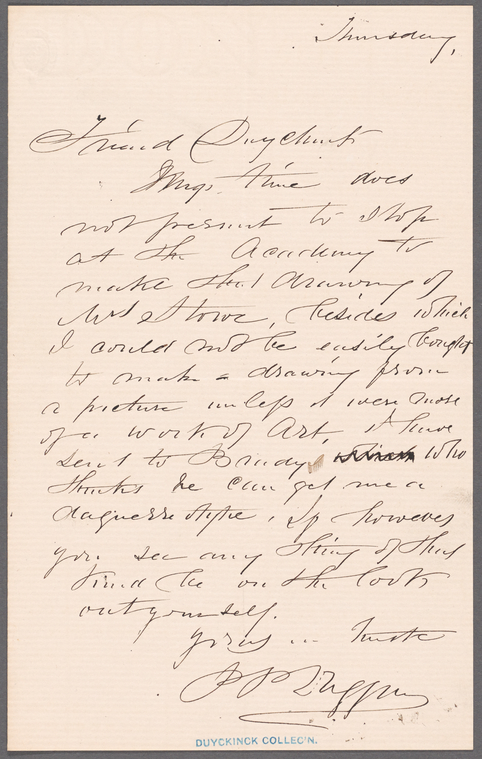 Thursday,
Friend Duyckink
My time does
not permit to stop
at the Academy to
make the drawing of
Mrs Stowe, besides which
I could not be easily bought
to make a drawing from
a picture unless it were more
of a work of Art, I have
sent to Brady who
thinks he can get me a
daguerreotype, if however
you see any thing of that
kind be on the look
out yourself.
Yours in haste
P P Duggan
DUYCKINCK COLLEC'N.